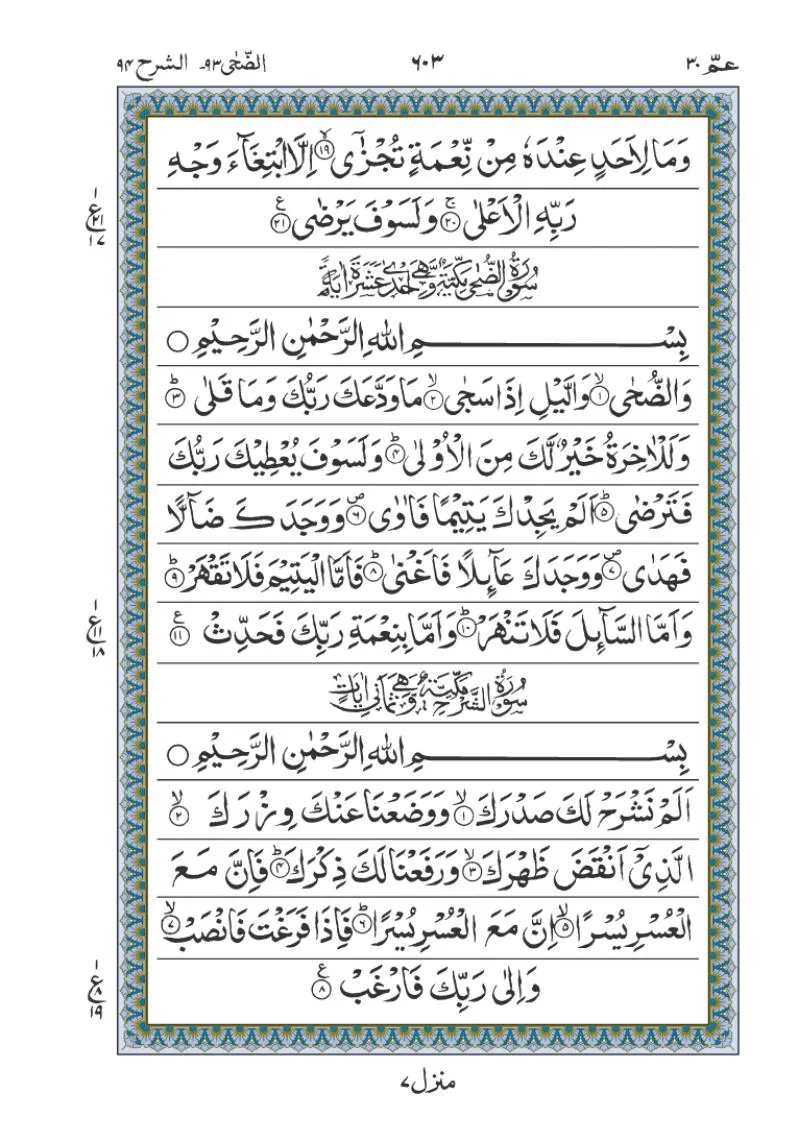 عمّ ٣٠ ٦٠٣ الضّحٰى ٩٣۔ الشرح ٩٤
وَمَا لِاَحَدٍ عِنْدَهٗ مِنْ نِّعْمَةٍ تُجْزٰۤى ۙ‏﴿۱۹﴾ اِلَّا ابْتِغَآءَ وَجْهِ
رَبِّهِ الْاَعْلٰى ۚ‏﴿۲۰﴾ وَلَسَوْفَ يَرْضٰى ﴿۲۱﴾ ع
١ ع ٢١ ١٧
سُوْرَةُ الضُّحٰى مَكِّيَّةٌ وَّهِىَ اِحْدٰى عَشَرَةَ اٰيَةً
بِسْمِ اللهِ الرَّحْمٰنِ الرَّحِيْمِ ○
وَالضُّحٰى ۙ‏﴿۱﴾ وَالَّيْلِ اِذَا سَجٰى ۙ‏﴿۲﴾ مَا وَدَّعَكَ رَبُّكَ وَمَا قَلٰى ؕ‏﴿۳﴾
وَلَلْاٰخِرَةُ خَيْرٌ لَّكَ مِنَ الْاُوْلٰى ؕ‏﴿۴﴾ وَلَسَوْفَ يُعْطِيْكَ رَبُّكَ
فَتَرْضٰى ؕ‏﴿۵﴾ اَلَمْ يَجِدْكَ يَتِيْمًا فَاٰوٰى ۖ‏﴿۶﴾ وَوَجَدَكَ ضَآلًّا
فَهَدٰى ۖ‏﴿۷﴾ وَوَجَدَكَ عَآئِلًا فَاَغْنٰى ؕ‏﴿۸﴾ فَاَمَّا الْيَتِيْمَ فَلَا تَقْهَرْ ؕ‏﴿۹﴾
وَاَمَّا السَّآئِلَ فَلَا تَنْهَرْ ؕ‏﴿۱۰﴾ وَاَمَّا بِنِعْمَةِ رَبِّكَ فَحَدِّثْ ﴿۱۱﴾ ع
١ ع ١١ ١٨
سُوْرَةُ الشَّرْحِ مَكِّيَّةٌ وَّهِىَ ثَمَانِىْ اٰيَاتٍ
بِسْمِ اللهِ الرَّحْمٰنِ الرَّحِيْمِ ○
اَلَمْ نَشْرَحْ لَكَ صَدْرَكَ ۙ‏﴿۱﴾ وَوَضَعْنَا عَنْكَ وِزْرَكَ ۙ‏﴿۲﴾
الَّذِىْۤ اَنْقَضَ ظَهْرَكَ ۙ‏﴿۳﴾ وَرَفَعْنَا لَكَ ذِكْرَكَ ؕ‏﴿۴﴾ فَاِنَّ مَعَ
الْعُسْرِ يُسْرًا ۙ‏﴿۵﴾ اِنَّ مَعَ الْعُسْرِ يُسْرًا ؕ‏﴿۶﴾ فَاِذَا فَرَغْتَ فَانْصَبْ ۙ‏﴿۷﴾
وَاِلٰى رَبِّكَ فَارْغَبْ ﴿۸﴾ ع
١ ع ٨ ١٩
منزل ٧